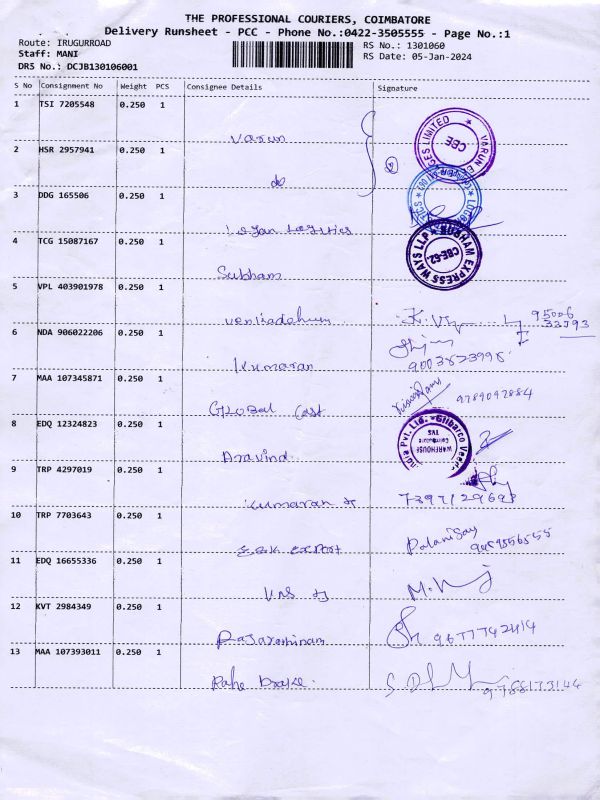 THE PROFESSIONAL COURIERS, COIMBATORE
Delivery Runsheet - PCC - Phone No.:0422-3505555 - Page No.:1
Route: IRUGURROAD
Staff: MANI
DRS No.: DCJB130106001
RS No.: 1301060
RS Date: 05-Jan-2024
S No Consignment No Weight PCS Consignee Details Signature
1 TSI 7205548 0.250 1 Varun
CES LIMITED VARUN CBE
2 HSR 2957941 0.250 1 do 2
3 DDG 165506 0.250 1 Logan Logistics
4 TCG 15087167 0.250 1 Subham
SUBHAM EXPRESS WAYS LLP CBE-62
5 VPL 403901978 0.250 1 95006
6 NDA 906022206 0.250 1 Kumaran
7 MAA 107345871 0.250 1 Global Cast 9789092884
8 EDQ 12324823 0.250 1 Aravind
ndia Pvt. Ltd. Gilbarco Veede
WAREHOUSE
Coimbatore
TVS
9 TRP 4297019 0.250 1 Kumaran
10 TRP 7703643 0.250 1 Export Palanisay
11 EDQ 16655336 0.250 1
12 KVT 2984349 0.250 1 9677742414
13 MAA 107393011 0.250 1 Rane Brake. 9788173144